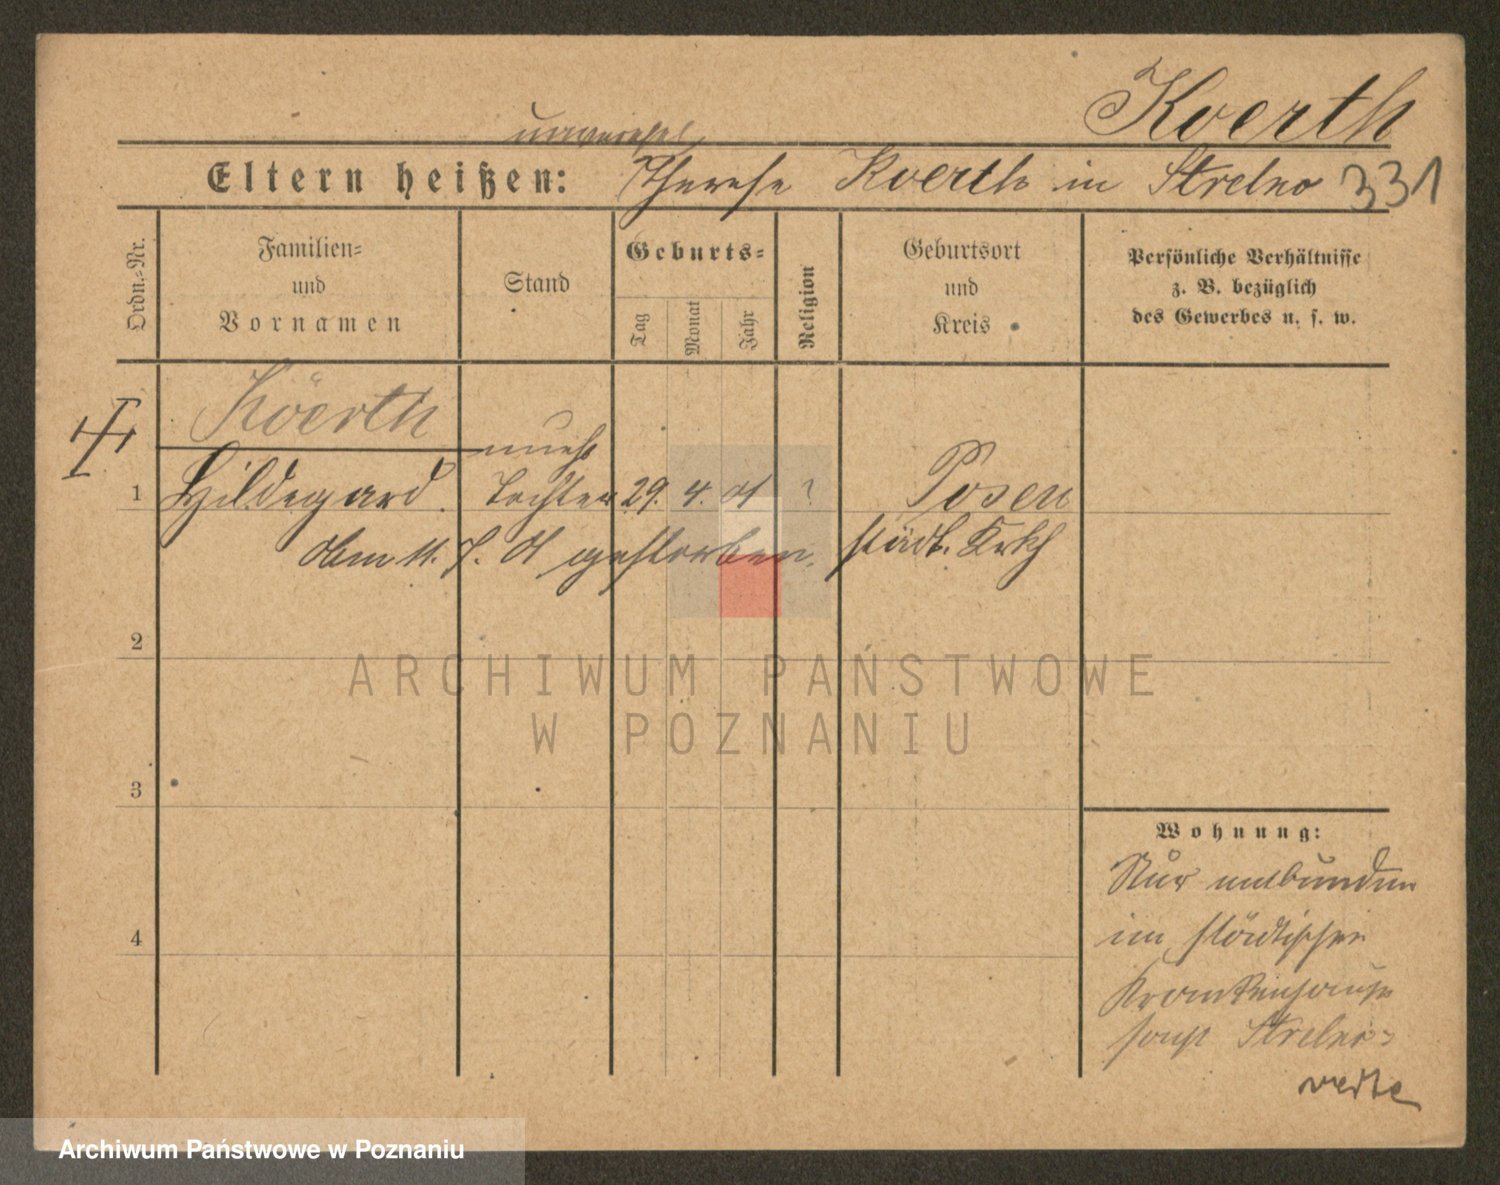 Koerth
unverehel.
Eltern heißen: Therese Koerth in Strelno 331
Ordn.-Nr.
Familien-
und
Vornamen
Stand
Geburts-
Tag
Monat
Jahr
Religion
Geburtsort
und
Kreis
Persönliche Verhältnisse
z. B. bezüglich
des Gewerbes u. s. w.
Köerth
unehl
1 Hildegard. Tochter 29. 4. 01 ? Posen
Am 11. 7. 01 gestorben. städt. Krkh
2
3
4
Wohnung:
Nur entbunden
im städtischen
Krankenhause
sonst Strelno
ARCHIWUM PAŃSTWOWE
W POZNANIU
Archiwum Państwowe w Poznaniu